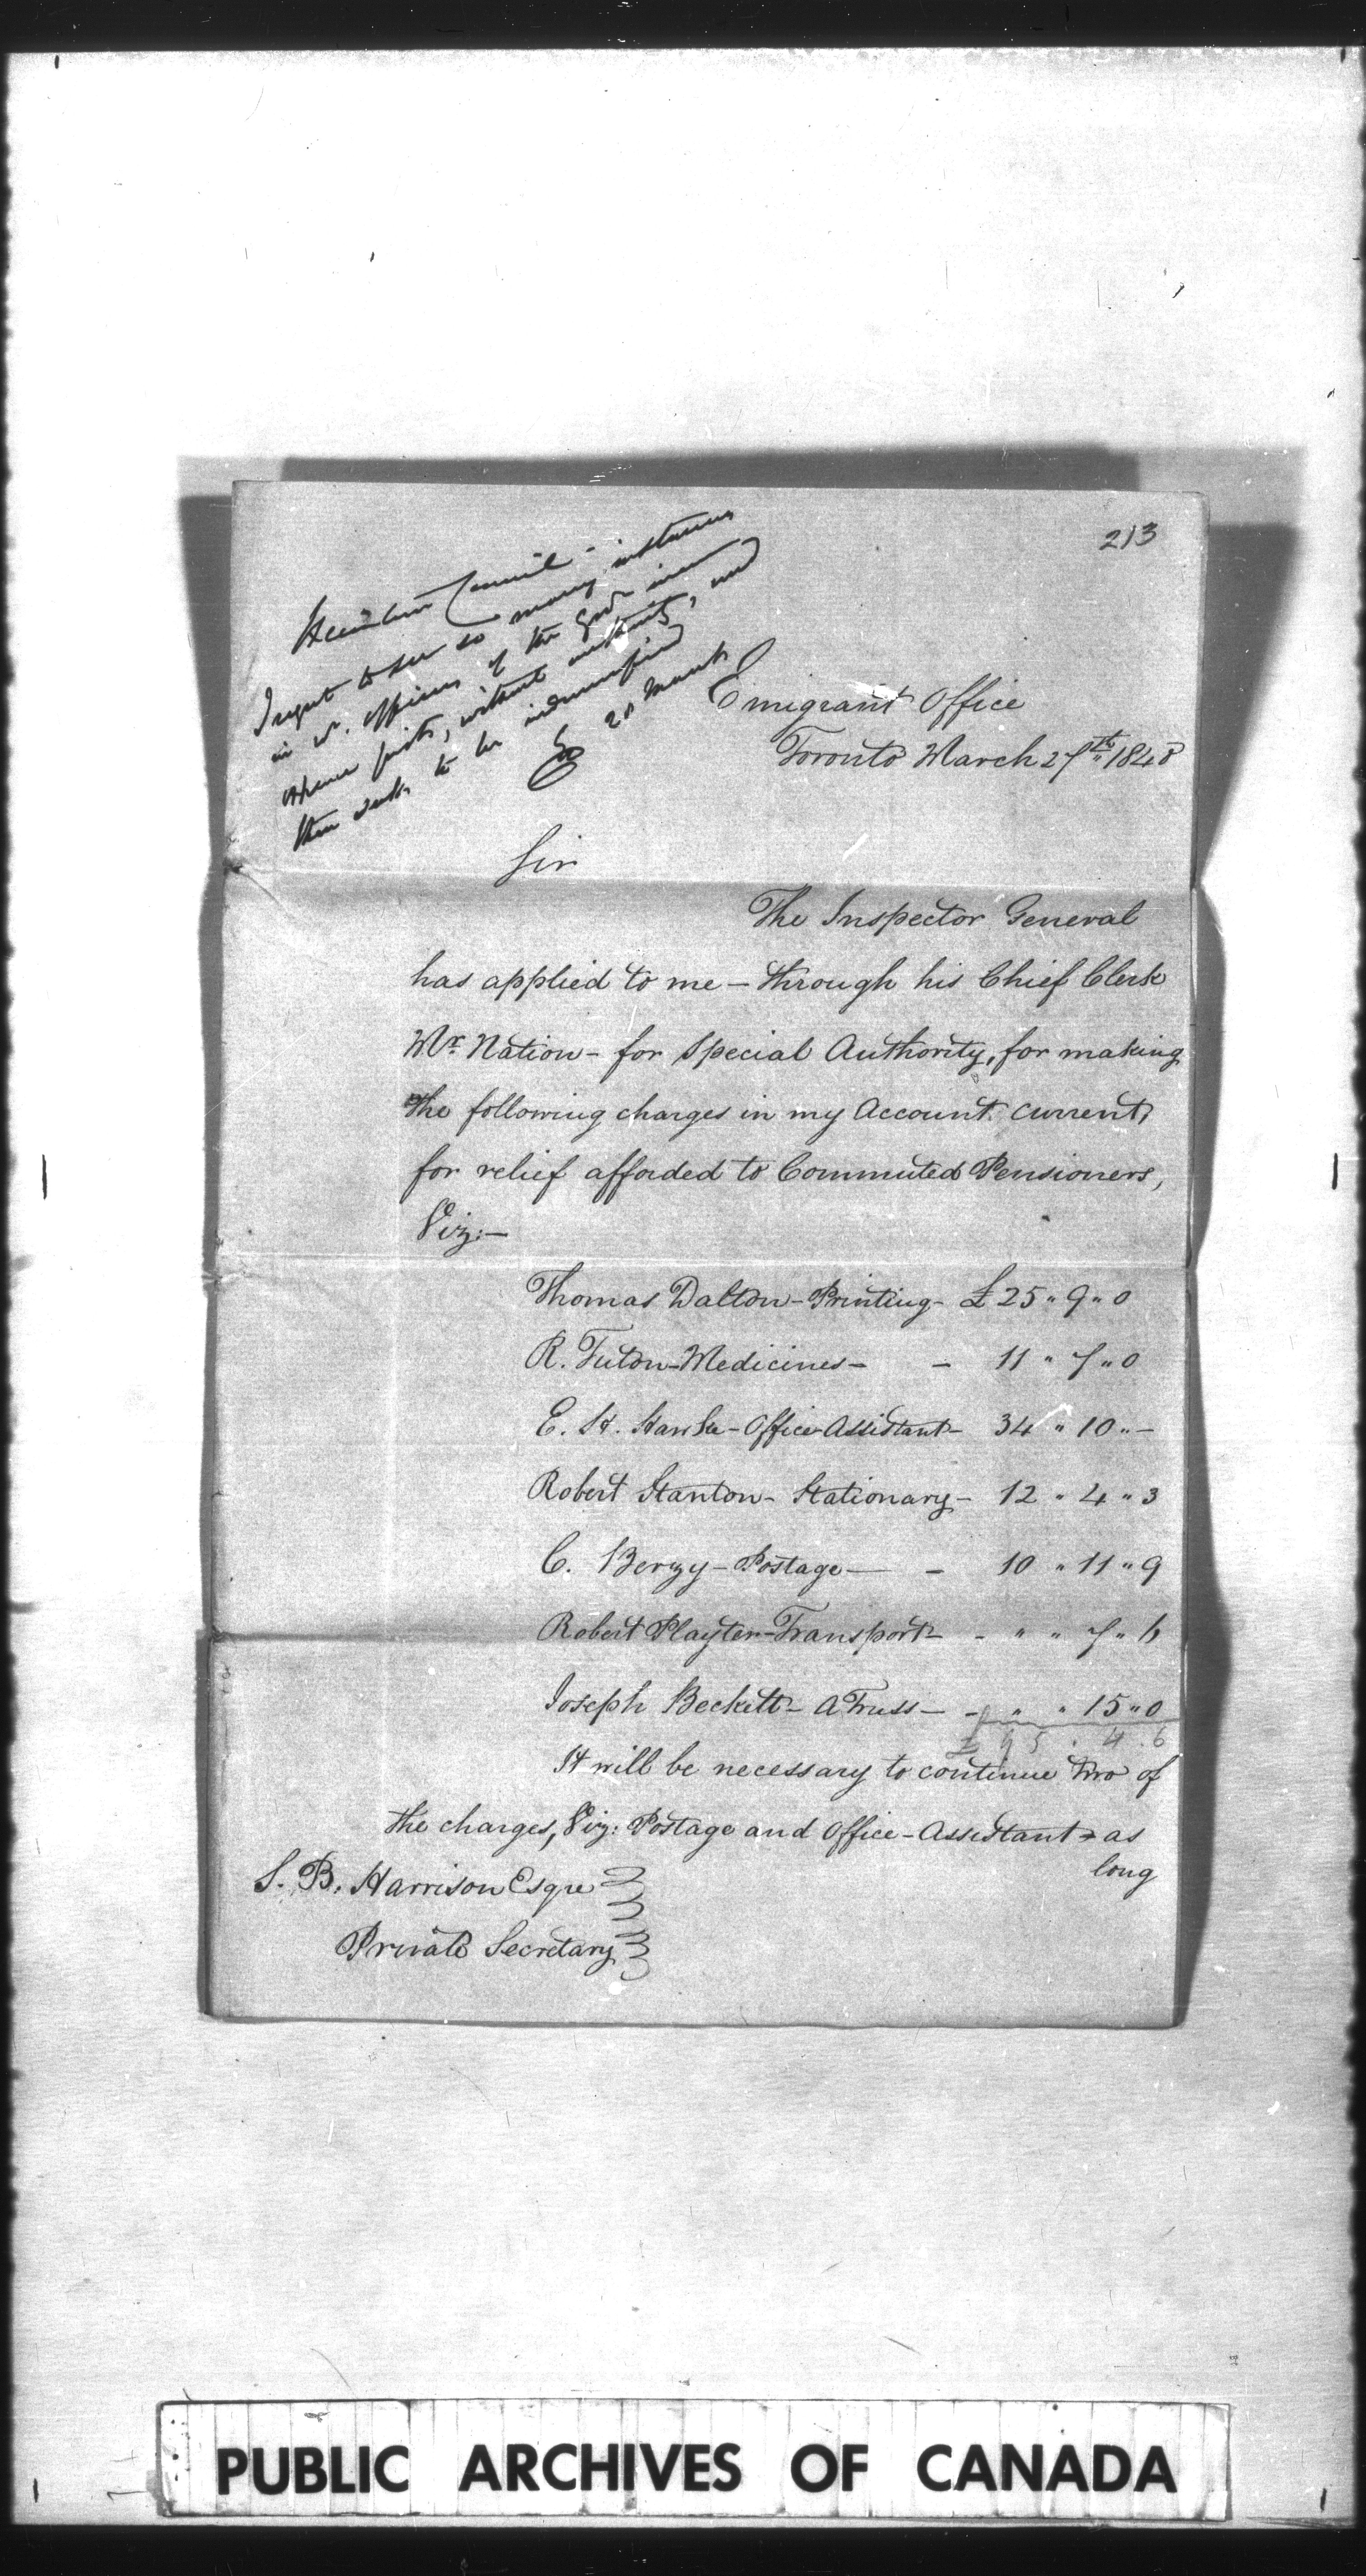 213
Executive Council -
I regret to see so many instances
in wh. officers of the Govt incur
expense first, without authority, and
then seek to be indemnified
March
Emigrant Office
Toronto March 27th 1840
Sir
The Inspector General
has applied to me - through his Chief Clerk
Mr. Nation - for Special Authority, for making
the following charges in my Account Current,
for relief afforded to Commuted Pensioners,
Viz:-
Thomas Dalton - Printing - £ 25 " 9 " 0
R. Tuton - Medicines - - 11 " 7 " 0
E. H. Hawke - Office Assistant - 34 " 10 " -
Robert Stanton - Stationary - 12 " 4 " 3
C. Berczy - Postage - - 10 " 11 " 9
Robert Playter - Transport - - " " 7 " 6
Joseph Beckett - A Truss - - " " 15 " 0
£ 95 . 4 . 6
It will be necessary to continue two of
the charges, Viz: Postage and Office - Assistant - as
long
S. B. Harrison Esqre
Private Secretary
PUBLIC ARCHIVES OF CANADA